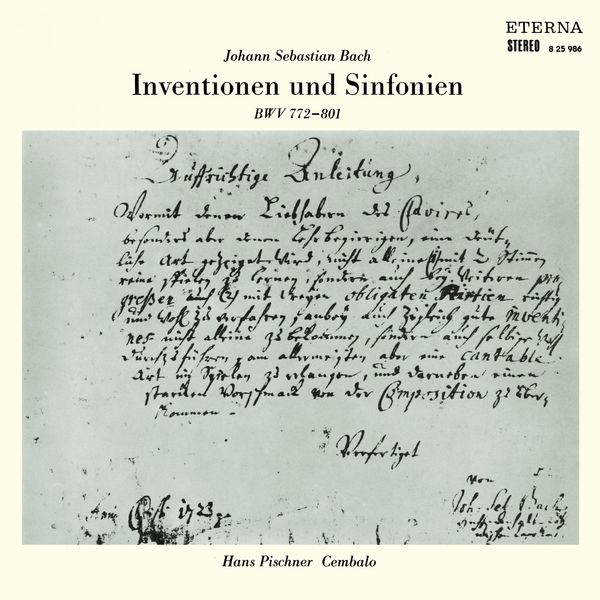 ETERNA
STEREO 8 25 986
Johann Sebastian Bach
Inventionen und Sinfonien
BWV 772–801
Auffrichtige Anleitung,
Wormit denen Liebhabern des Clavires,
besonders aber denen Lehrbegierigen, eine deüt-
liche Art gezeiget wird, nicht alleine mit 2 Stimen
reine spielen zu lernen, sondern auch bey weiteren pro-
greßen auch mit dreyen obligaten Partien richtig
und wohl zu verfahren, anbey auch zugleich gute inventi-
ones nicht alleine zu bekommen, sondern auch selbige wohl
durchzuführen, am allermeisten aber eine cantable
Art im Spielen zu erlangen, und darneben einen
starcken Vorschmack von der Composition zu über-
kommen.
Verfertiget
von
Anno Christi 1723.
Joh. Seb. Bach
Hans Pischner Cembalo